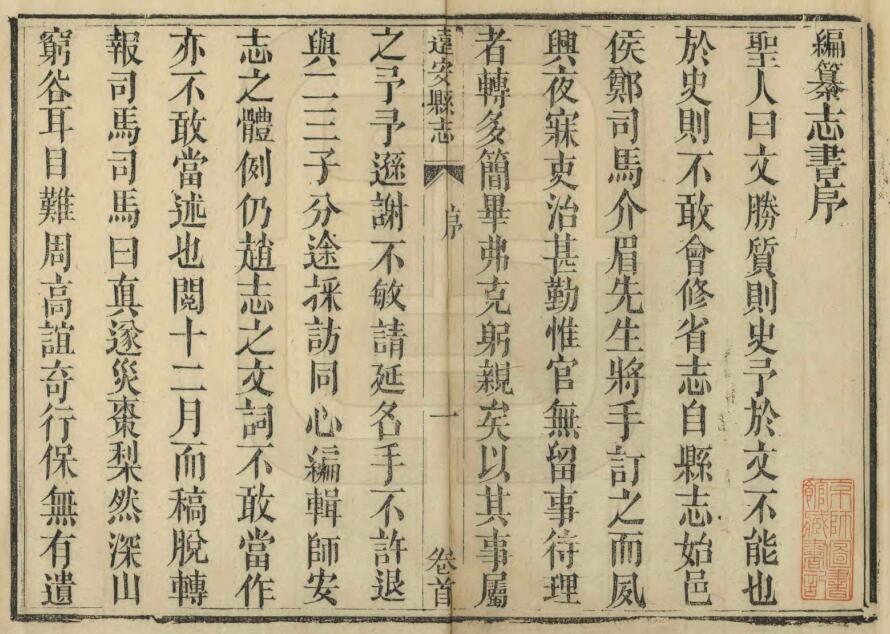 編纂志書序
聖人曰文勝質則史予於文不能也
於史則不敢會修省志自縣志始邑
侯鄭司馬介眉先生將手訂之而夙
興夜寐吏治甚勤惟官無留事待理
者轉多簡畢弗克躬親矣以其事屬
遠安縣志 序 一 卷首
之予予遜謝不敏請延名手不許退
與二三子分途採訪同心編輯師安
志之體例仍趙志之文詞不敢當作
亦不敢當述也閱十二月而稿脫轉
報司馬司馬曰真遂災棗梨然深山
窮谷耳目難周高誼奇行保無有遺